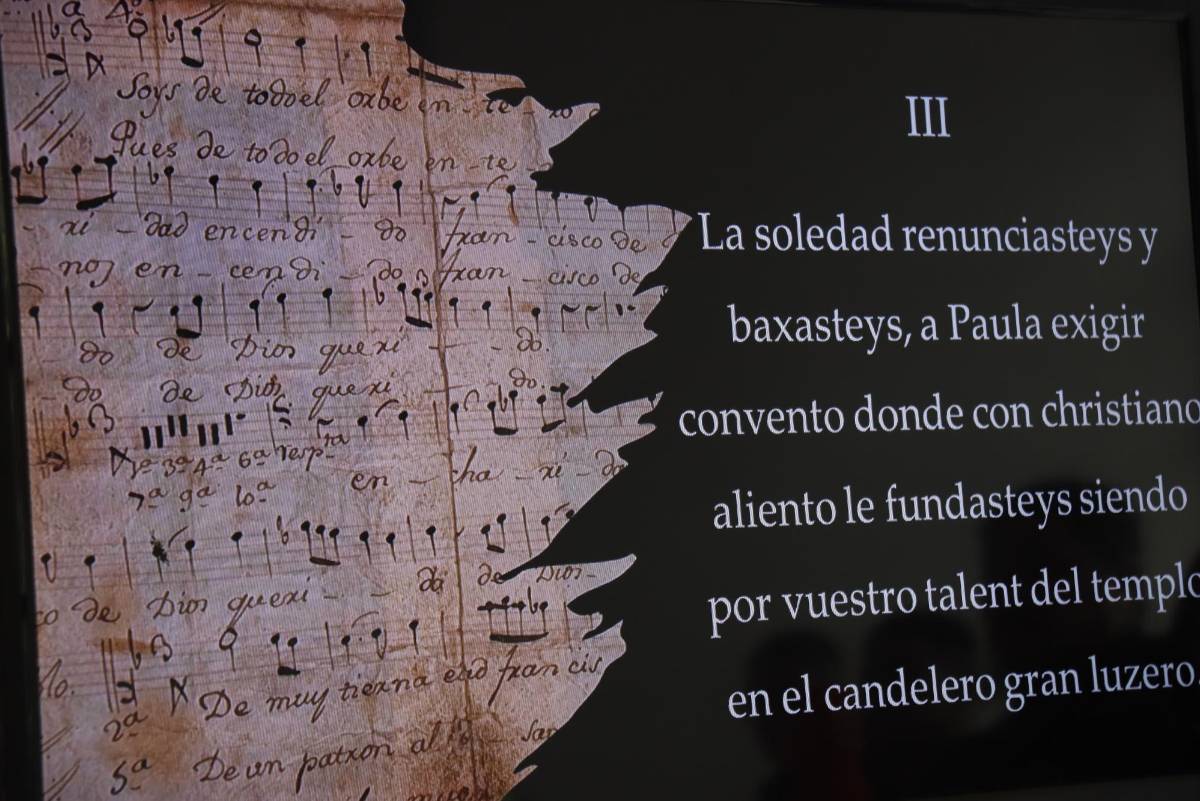 4ª
Soys de todo el orbe en - te - ro
Pues de todo el orbe en - te
- ri - dad encendi - do fran - cisco de
- nos en - cendi - do fran - cisco de
- do de Dios queri - - - do.
- do de Dios queri - - do.
3ª 3ª 4ª 6ª respta
7ª 9ª 10ª
en - cha - ri - do
co de Dios queri - - do de Dios -
lo.
De muy tierna edad francis
2ª
5ª De un patron al
III
La soledad renunciasteys y
baxasteys, a Paula exigir
convento donde con christiano
aliento le fundasteys siendo
por vuestro talent del templo
en el candelero gran luzero.